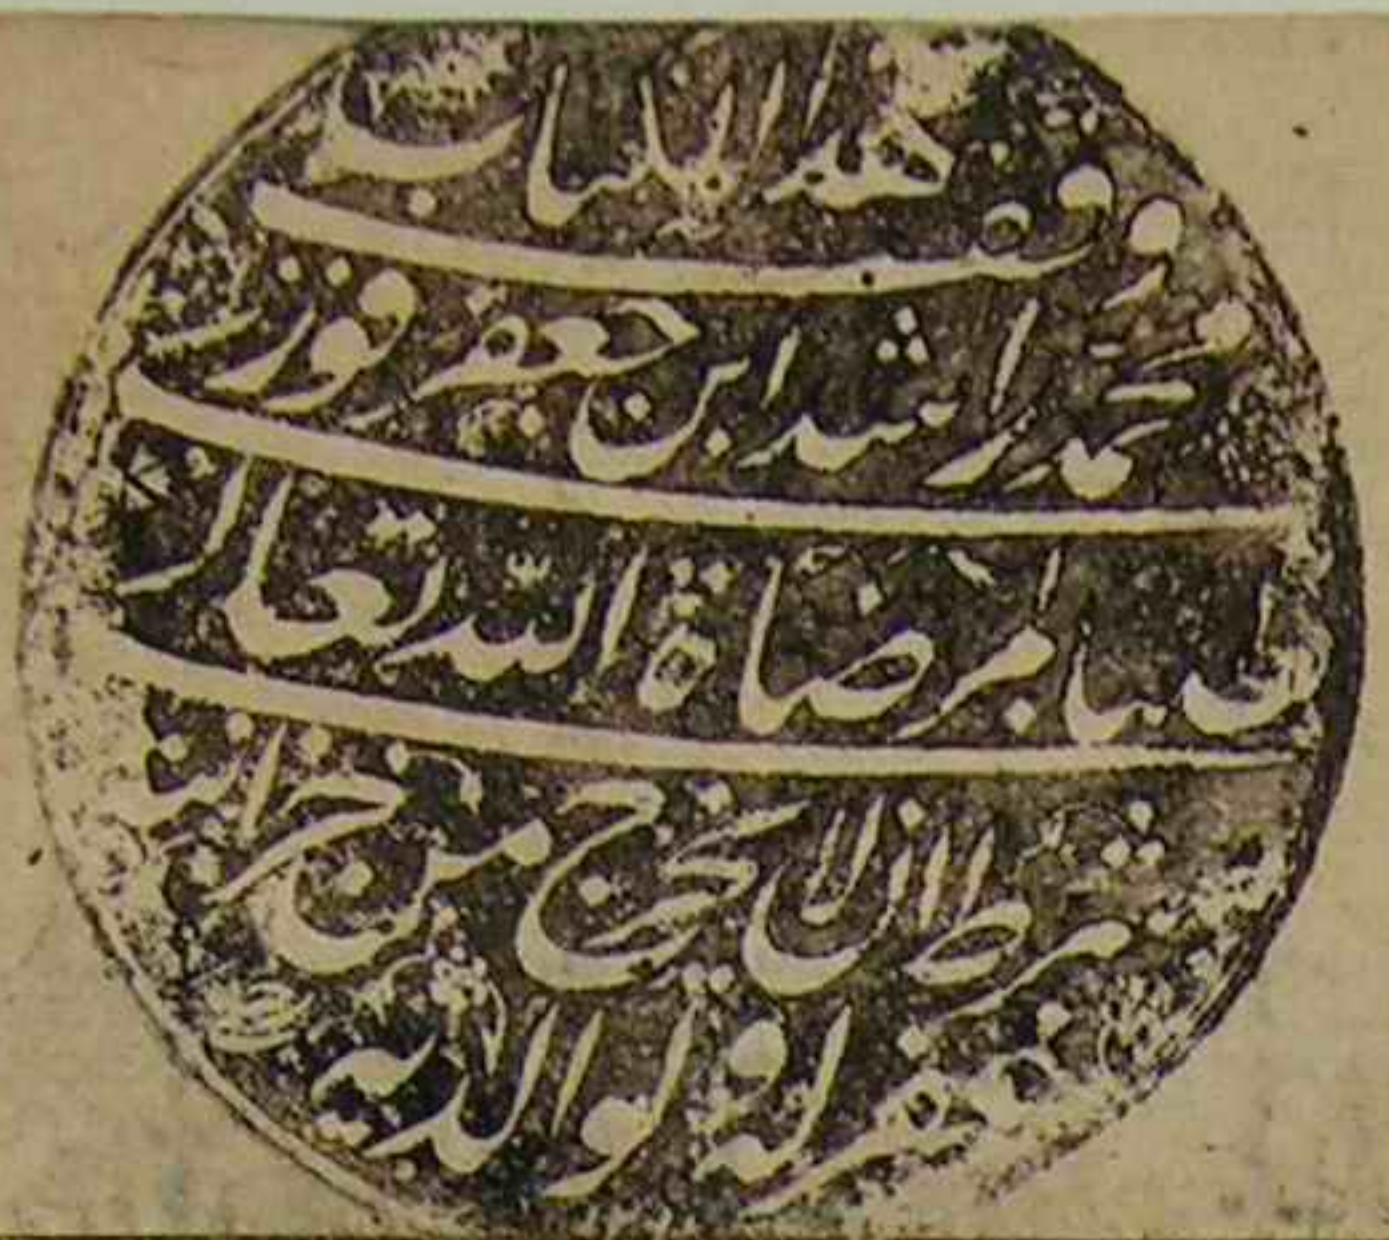 وقف هذا الكتاب
محمد راشد ابن جعفر فوزي
طلبا لمرضاة الله تعالى
بشرط ان لا يخرج من خزانته
غفر له و لوالديه